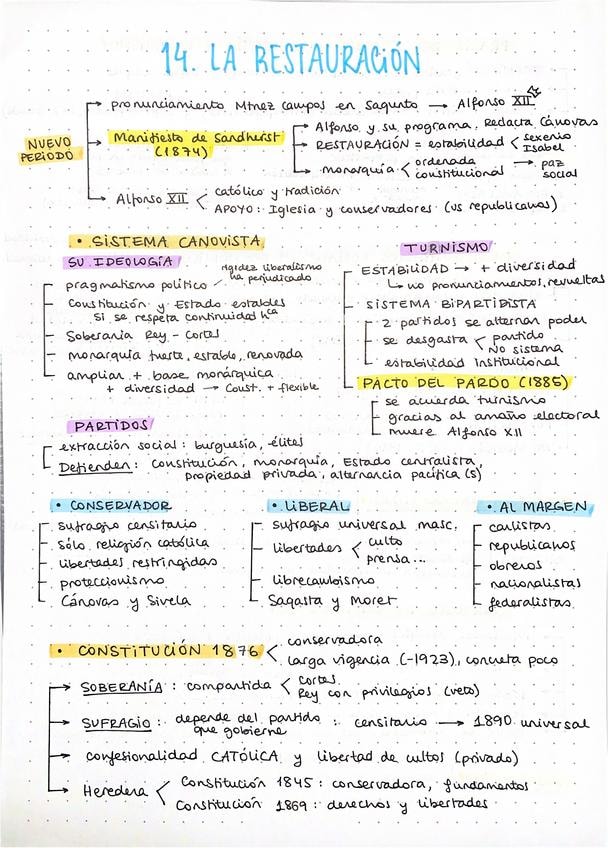 14. LA RESTAURACIÓN
NUEVO PERIODO
pronunciamiento Mtnez campos en Sagunto → Alfonso XII
Manifiesto de Sandhurst (1874)
Alfonso y su programa. Redacta Cánovas
RESTAURACIÓN = estabilidad < sexenio
Isabel
monarquía < ordenada → paz
constitucional social
Alfonso XII < católico y tradición
APOYO: Iglesia y conservadores (vs republicanos)
• SISTEMA CANOVISTA
SU IDEOLOGÍA
pragmatismo político / rigidez liberalismo
ha perjudicado
Constitución y Estado estables
Si se respeta continuidad hca
Soberanía Rey - Cortes
monarquía fuerte, estable, renovada
ampliar + base monárquica
+ diversidad → Const. + flexible
TURNISMO
ESTABILIDAD → + diversidad
↳ no pronunciamientos, revueltas
SISTEMA BIPARTIDISTA
2 partidos se alternan poder
se desgasta < partido
No sistema
estabilidad institucional
PACTO DEL PARDO (1885)
se acuerda turnismo
gracias al amaño electoral
muere Alfonso XII
PARTIDOS
extracción social: burguesía, élites
Defienden: Constitución, monarquía, Estado centralista,
propiedad privada, alternancia pacífica (s)
• CONSERVADOR
sufragio censitario
sólo religión católica
libertades restringidas
proteccionismo
Cánovas y Sivela
• LIBERAL
sufragio universal masc.
libertades < culto
prensa...
librecambismo
Sagasta y Moret
• AL MARGEN
carlistas
republicanos
obreros
nacionalistas
federalistas
• CONSTITUCIÓN 1876 < conservadora
larga vigencia (-1923), concreta poco
SOBERANÍA: compartida < Cortes
Rey con privilegios (veto)
SUFRAGIO: depende del partido : censitario → 1890 universal
que gobierne
confesionalidad CATÓLICA y libertad de cultos (privado)
Heredera < Constitución 1845: conservadora, fundamentos
Constitución 1869: derechos y libertades